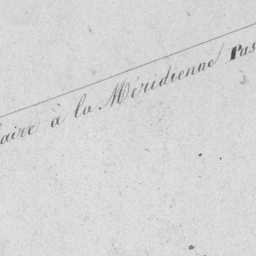 aire à la Méridienne Pas